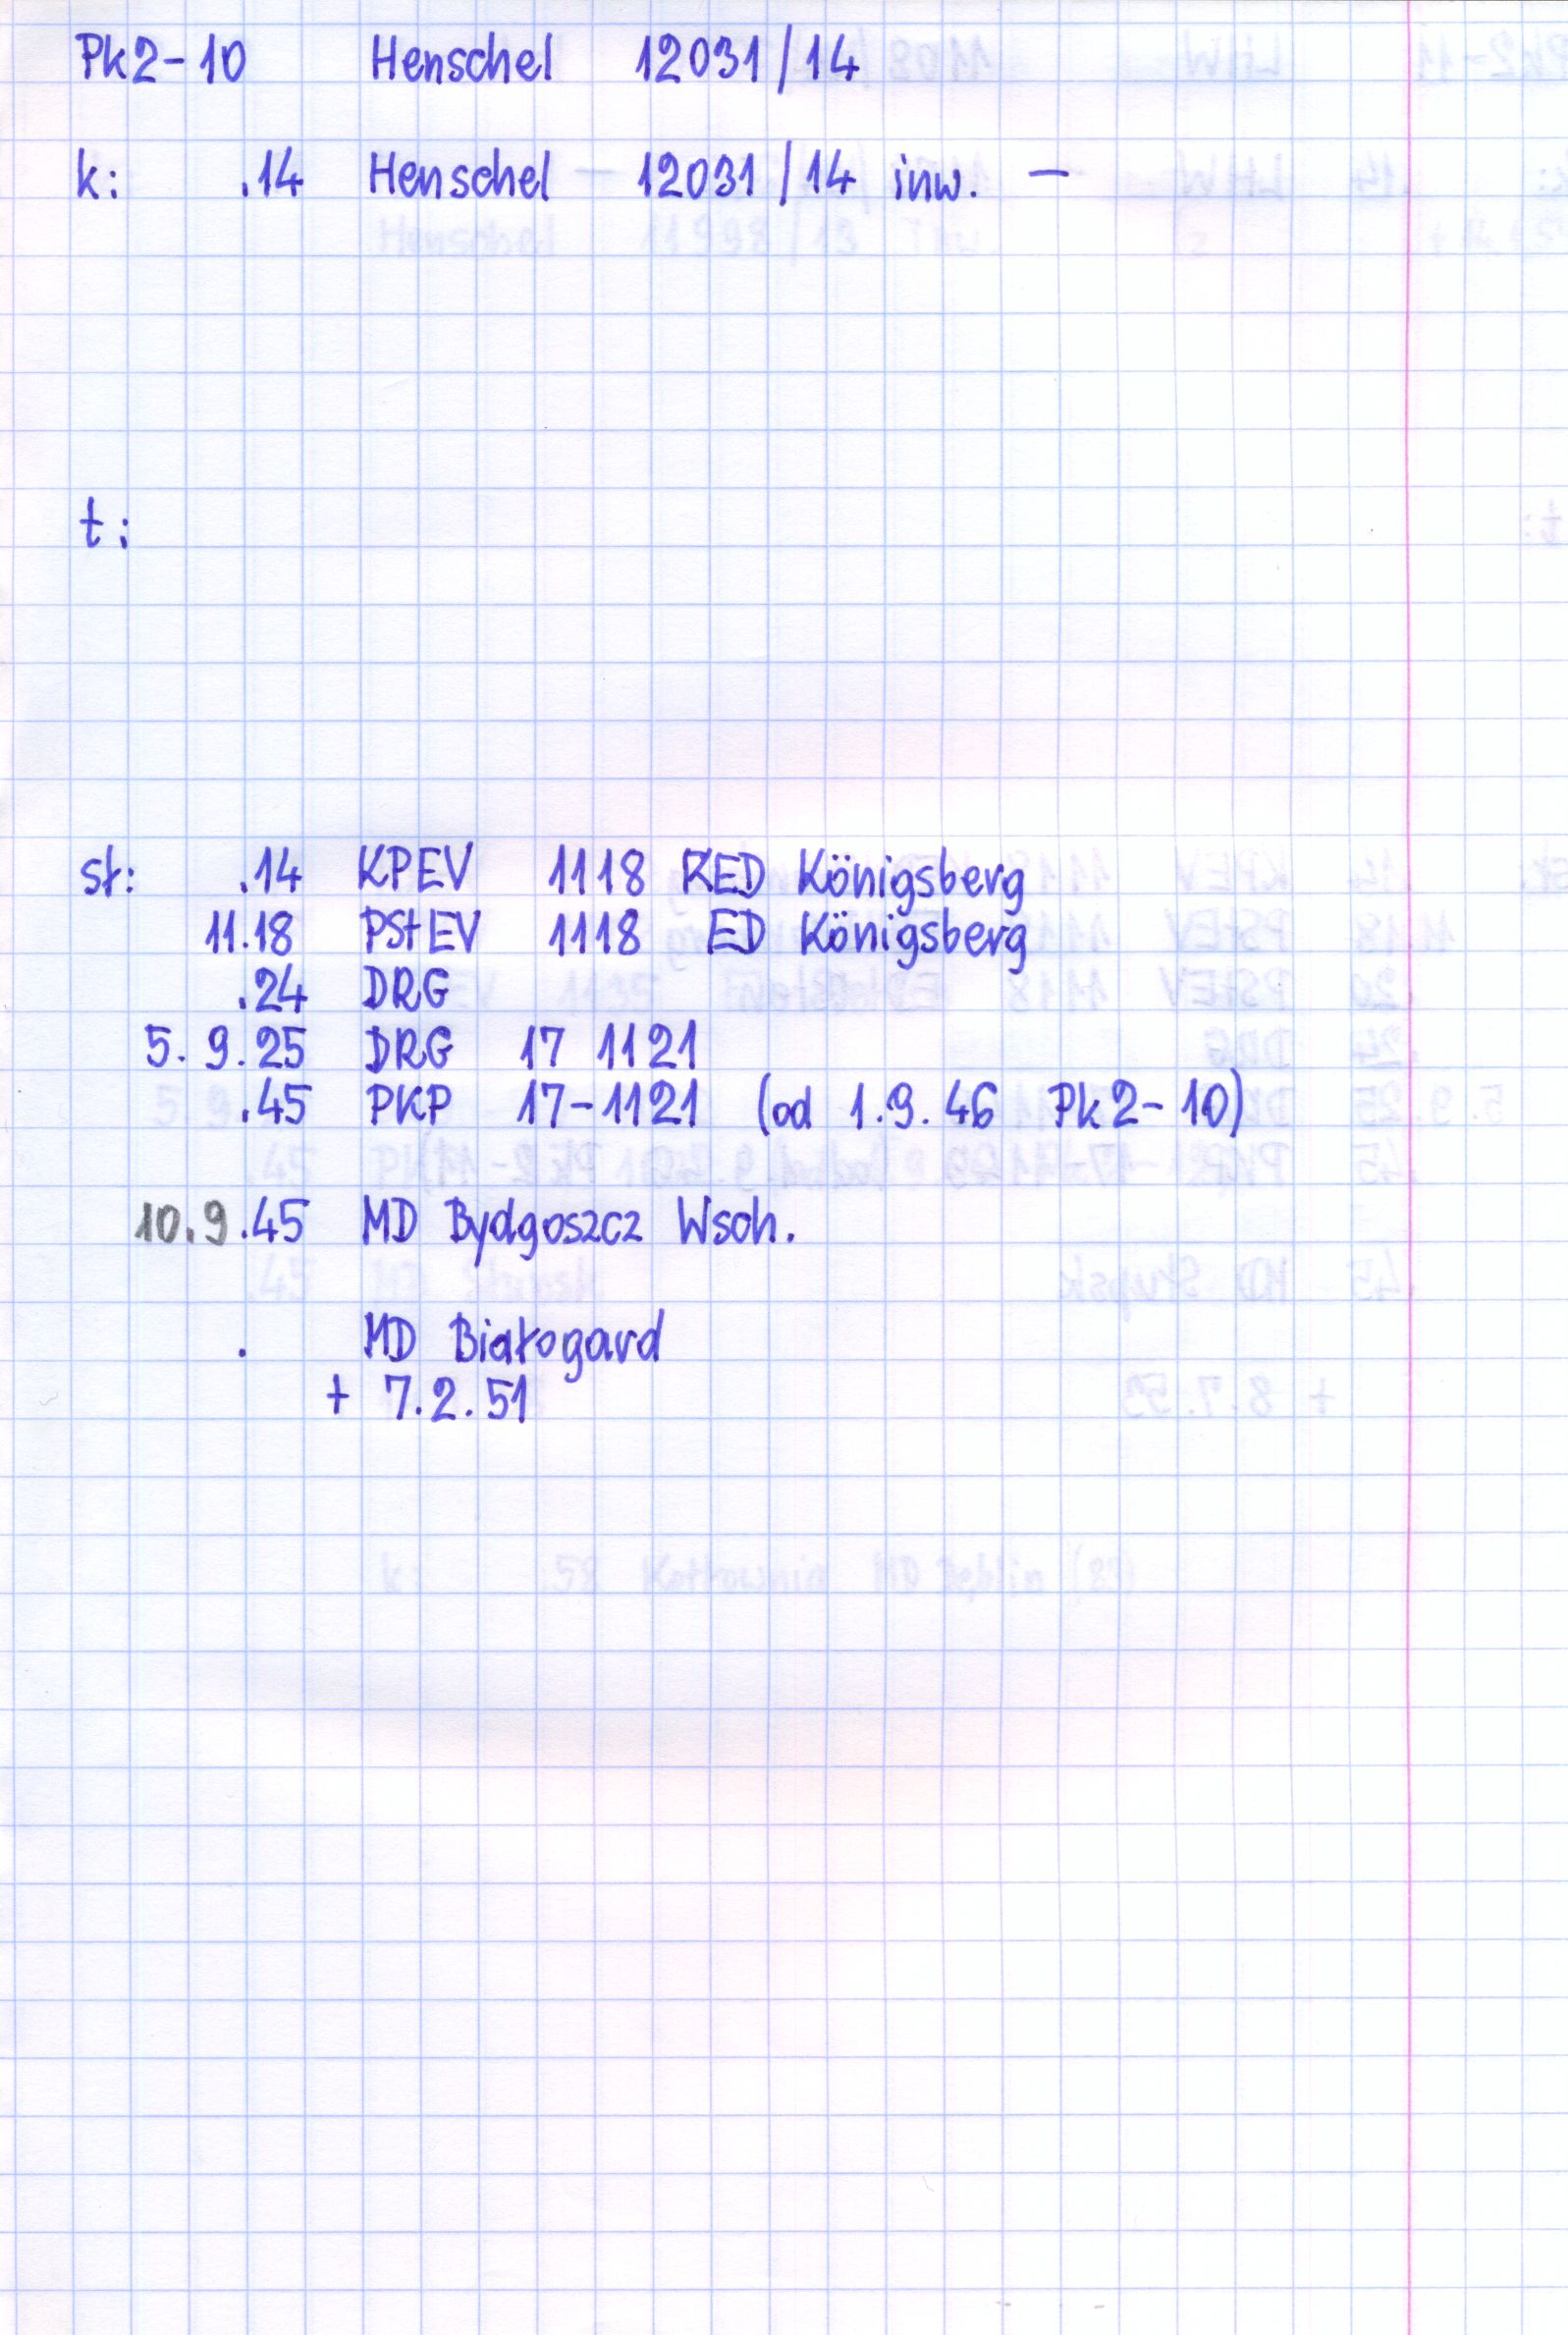 Pk2-10 Henschel 12031/14
k: .14 Henschel 12031/14 inw. —
t:
st: .14 KPEV 1118 KED Königsberg
11.18 PStEV 1118 ED Königsberg
.24 DRG
5.9.25 DRG 17 1121
.45 PKP 17-1121 (od 1.9.46 Pk2-10)
10.9.45 MD Bydgoszcz Wsch.
. MD Białogard
+ 7.2.51